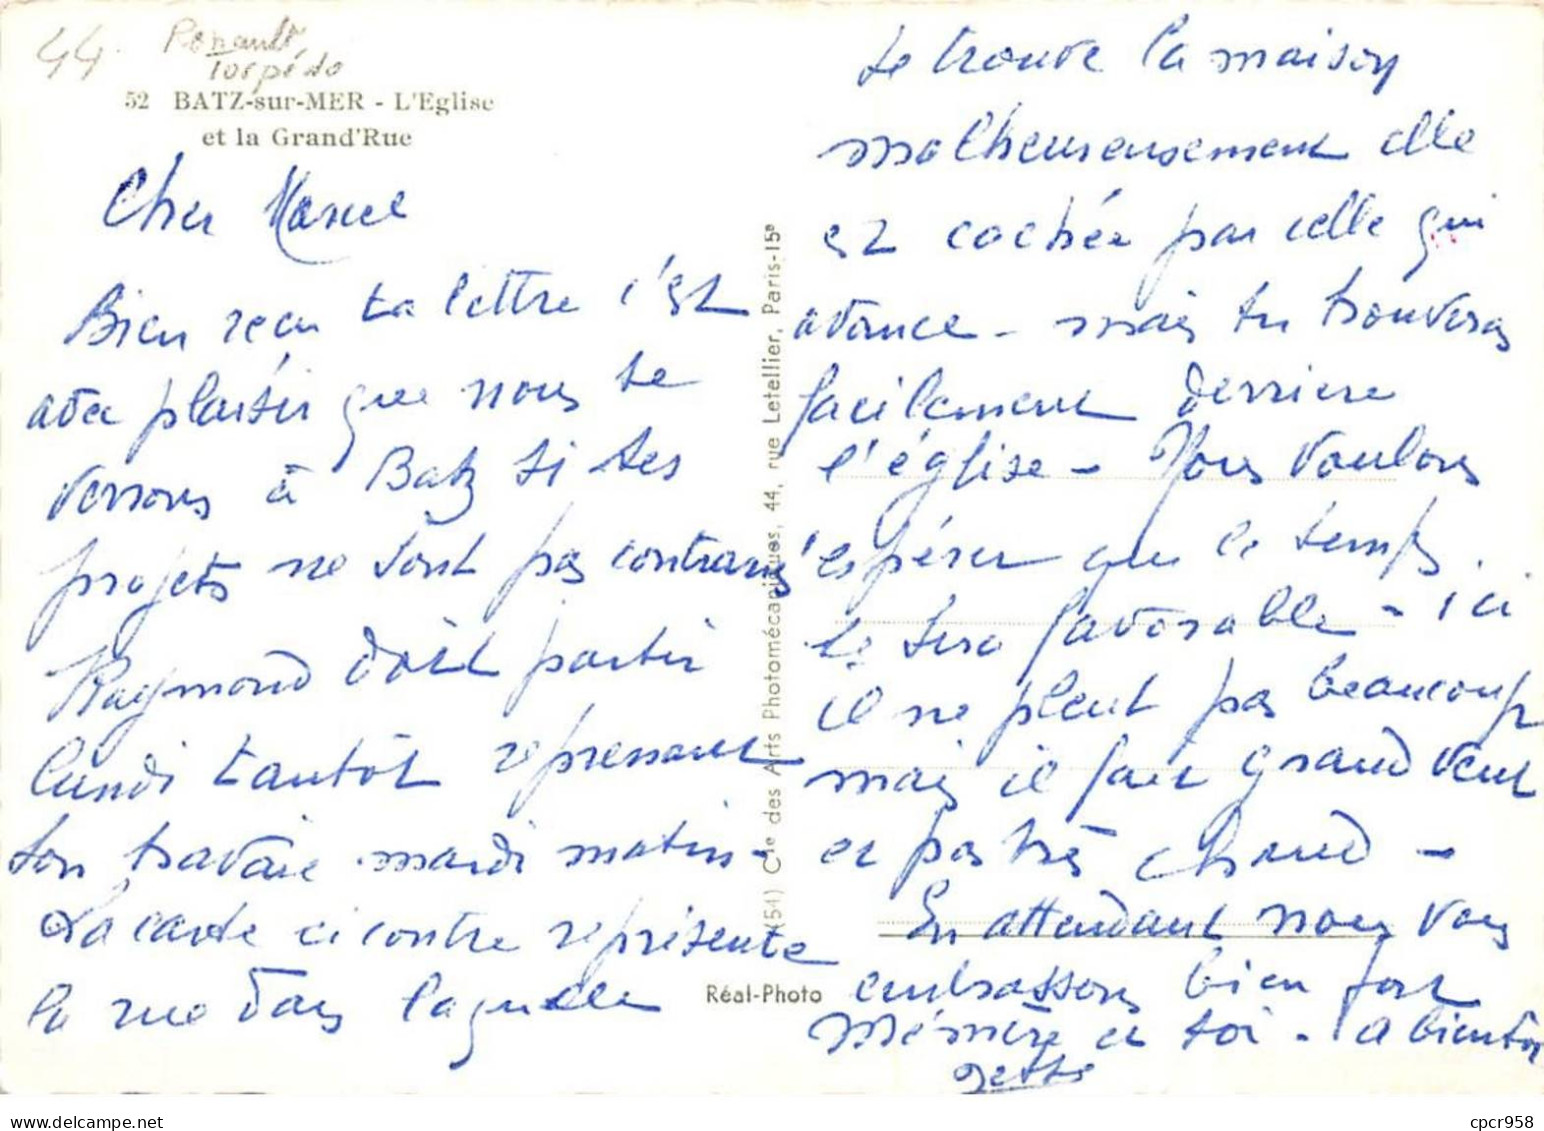 44
Renault
Torpédo
52 BATZ-sur-MER - L'Eglise
et la Grand'Rue
Cher Marcel
Bien reçu ta lettre c'est
avec plaisir que nous te
verrons à Batz si tes
projets ne sont pas contrariés
Raymond doit partir
lundi tantôt reprenant
son travail mardi matin -
La carte ci contre représente
la rue dans laquelle
(54) Cie des Arts Photomécaniques, 44, rue Letellier, Paris-15e
Réal-Photo
se trouve la maison
malheureusement elle
est cachée par celle qui
avance - mais tu trouveras
facilement derriere
l'église - Nous voulons
espérer que le temps
te sera favorable - ici
il ne pleut pas beaucoup
mais il fait grand vent
et pas très chaud -
En attendant nous vous
embrassons bien fort
Mémère et toi - a bientôt
cpcr958